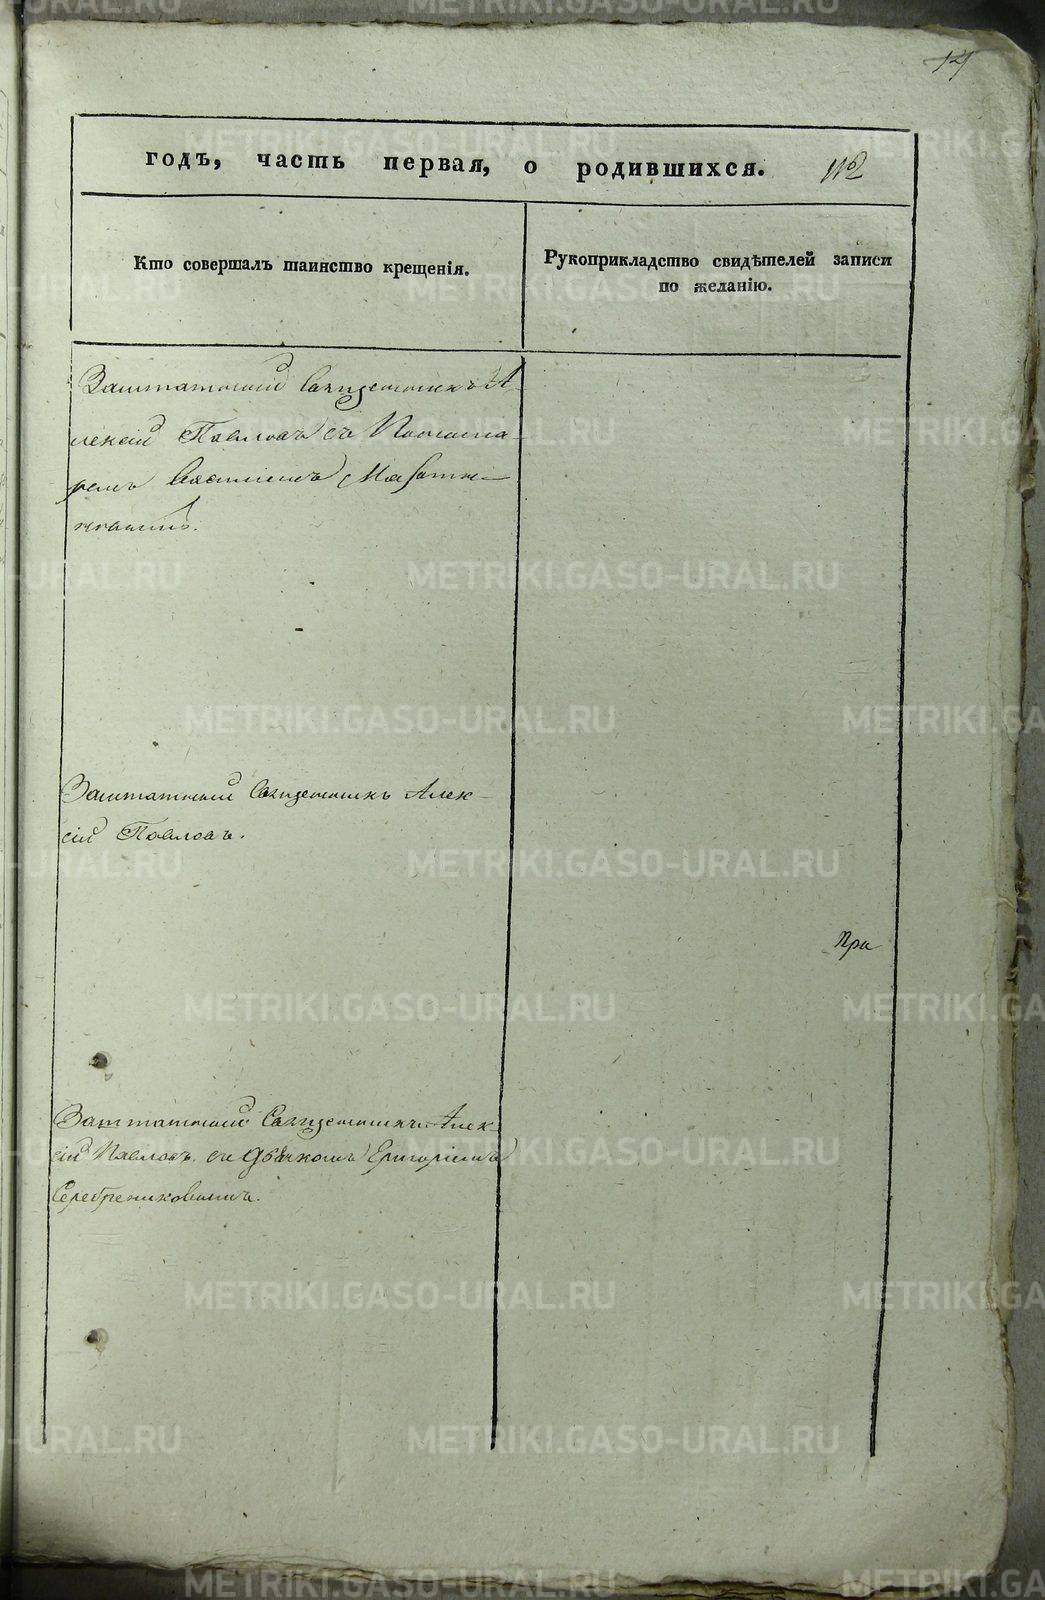 годъ, часть первая, о родившихся. 112
Кто совершалъ таинство крещенія.
Рукоприкладство свидѣтелей записи
по желанію.
Заштатный Священникъ А-
лексій Павловъ съ Понома-
ремъ Евсигніемъ Мяготи-
нымъ.
Заштатный Священникъ Алек-
сій Павловъ.
При
Заштатный Священникъ Алек-
сій Павловъ съ Дьячкомъ Григоріемъ
Серебрениковымъ.
METRIKI.GASO-URAL.RU